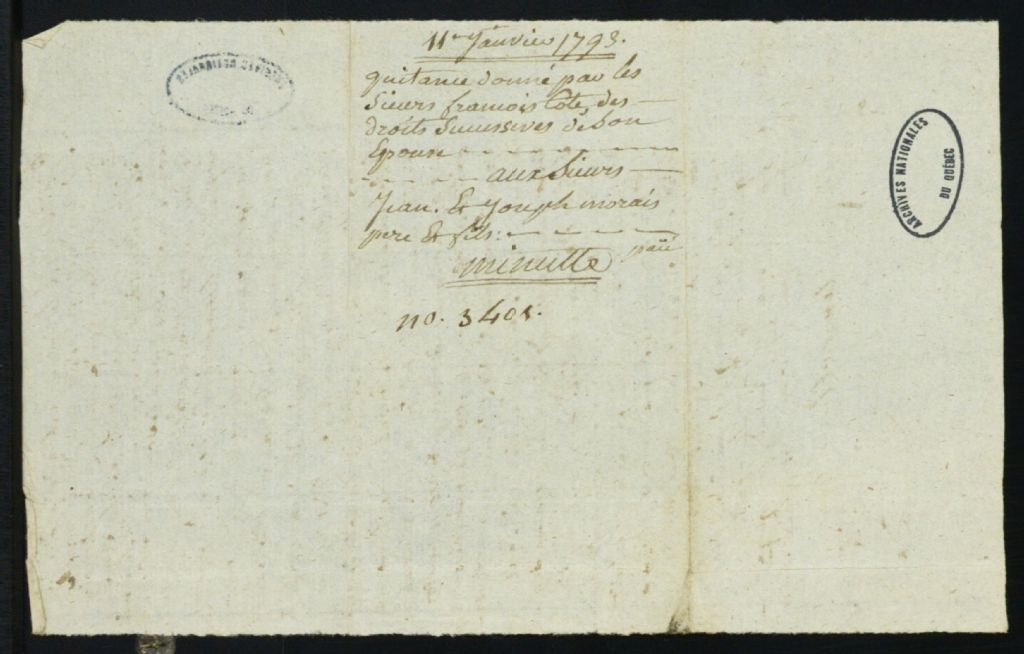 11er Janvier 1793.
quitance donné par les
Sieurs francois Cote, des
droits Successives de Son
Epouse
aux Sieurs
Jean. Et Joseph morais
pere Et fils:
paié
minutte
no. 3401.
ARCHIVES NATIONALES
DU QUÉBEC